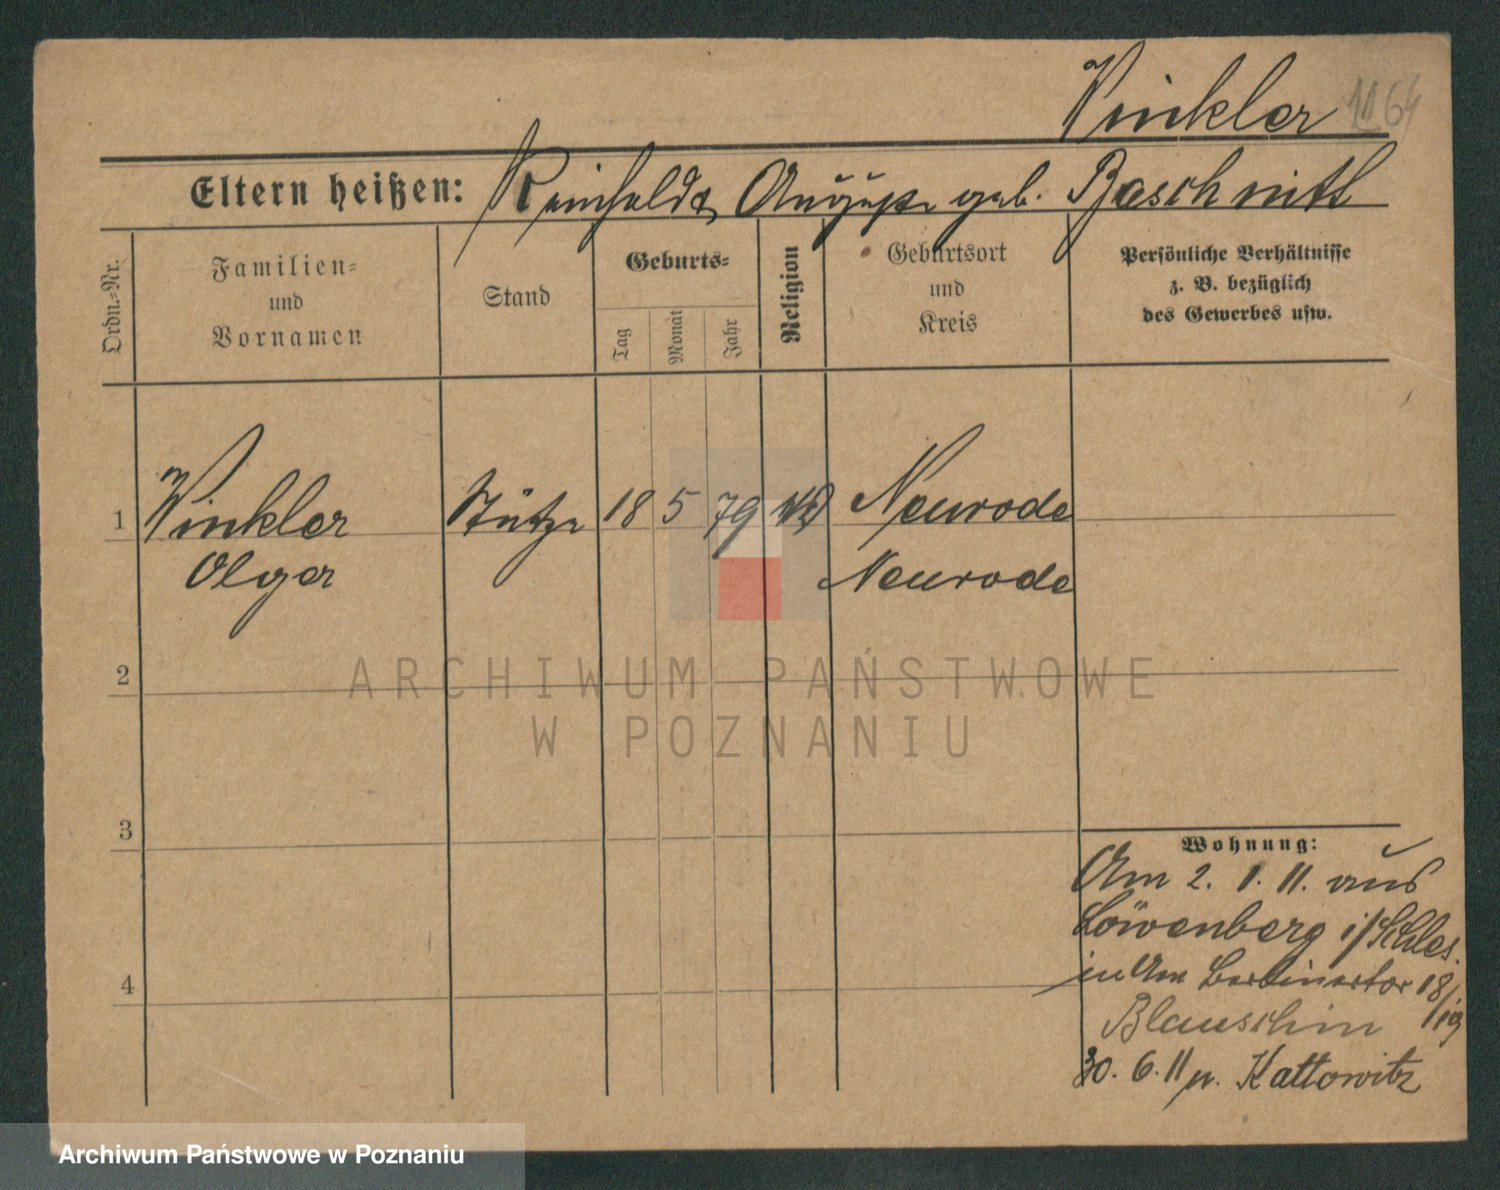 Winkler 1164
Eltern heißen: Reinhold & Auguste geb. Baschnitt
Ordn.-Nr.
Familien-
und
Vornamen
Stand
Geburts-
Tag
Monat
Jahr
Religion
Geburtsort
und
Kreis
Persönliche Verhältnisse
z. B. bezüglich
des Gewerbes usw.
1 Winkler Stütze 18 5 79 Neurode
Olger Neurode
2
3
4
Wohnung:
Am 2. 1. 11. aus
Löwenberg i/Schles.
in Am Berlinertor 18/19
Blauschin
30. 6. 11 n. Kattowitz
ARCHIWUM PAŃSTWOWE
W POZNANIU
Archiwum Państwowe w Poznaniu